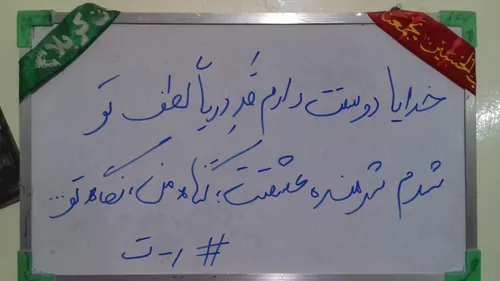 کربلا
خدایا دوست دارم قدِ دریا لطف تو
شدم شرمنده عشقت؛ گناه من، نگاه تو...
# ر-ت